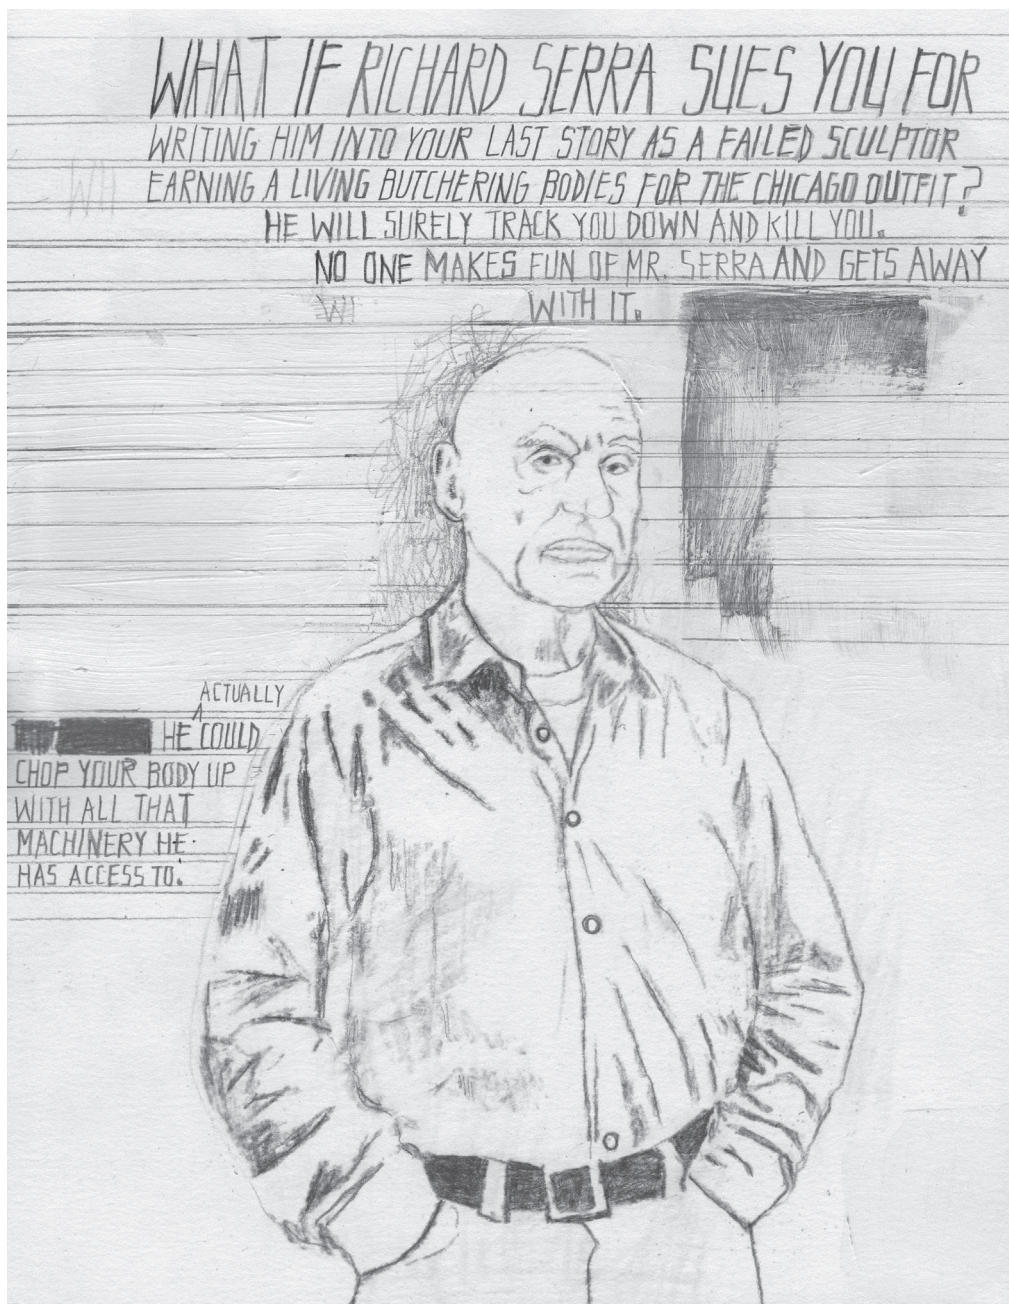 WHAT IF RICHARD SERRA SUES YOU FOR
WRITING HIM INTO YOUR LAST STORY AS A FAILED SCULPTOR
EARNING A LIVING BUTCHERING BODIES FOR THE CHICAGO OUTFIT?
WH
HE WILL SURELY TRACK YOU DOWN AND KILL YOU.
NO ONE MAKES FUN OF MR. SERRA AND GETS AWAY
WI
WITH IT.
ACTUALLY
HE COULD
CHOP YOUR BODY UP
WITH ALL THAT
MACHINERY HE
HAS ACCESS TO.